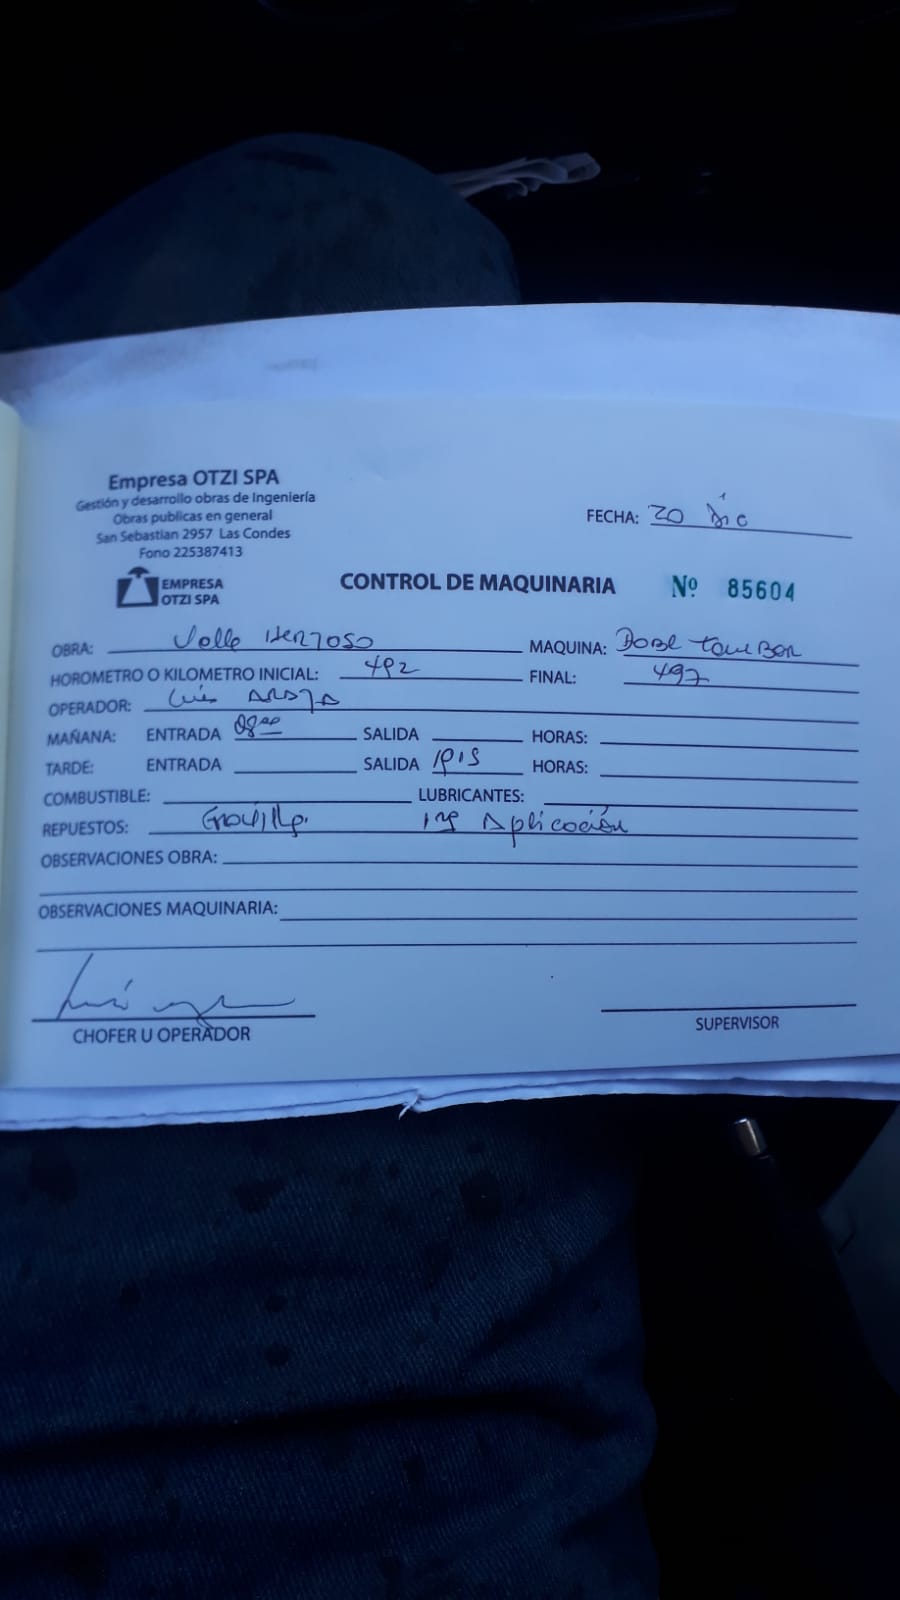 Empresa OTZI SPA
Gestión y desarrollo obras de Ingeniería
Obras publicas en general
San Sebastian 2957 Las Condes
Fono 225387413
EMPRESA
OTZI SPA
FECHA: 20 Dic
CONTROL DE MAQUINARIA Nº 85604
OBRA: Valle Hermoso MAQUINA:
HOROMETRO O KILOMETRO INICIAL: 492 FINAL: 497
OPERADOR: Luis
MAÑANA: ENTRADA 08ºº SALIDA HORAS:
TARDE: ENTRADA SALIDA HORAS:
COMBUSTIBLE: LUBRICANTES:
REPUESTOS: Gravilla. Aplicación
OBSERVACIONES OBRA:
OBSERVACIONES MAQUINARIA:
CHOFER U OPERADOR
SUPERVISOR